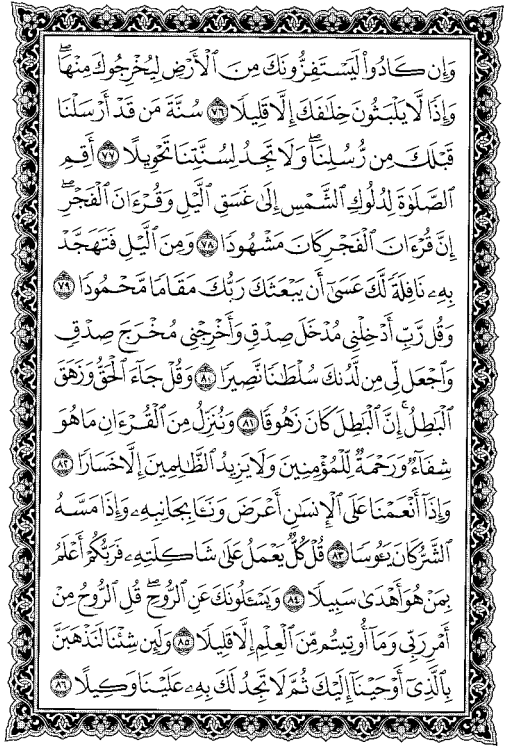 وَإِن كَادُوا۟ لَيَسْتَفِزُّونَكَ مِنَ ٱلْأَرْضِ لِيُخْرِجُوكَ مِنْهَا ۖ
وَإِذًا لَّا يَلْبَثُونَ خِلَـٰفَكَ إِلَّا قَلِيلًا ٧٦ سُنَّةَ مَن قَدْ أَرْسَلْنَا
قَبْلَكَ مِن رُّسُلِنَا ۖ وَلَا تَجِدُ لِسُنَّتِنَا تَحْوِيلًا ٧٧ أَقِمِ
ٱلصَّلَوٰةَ لِدُلُوكِ ٱلشَّمْسِ إِلَىٰ غَسَقِ ٱلَّيْلِ وَقُرْءَانَ ٱلْفَجْرِ ۖ
إِنَّ قُرْءَانَ ٱلْفَجْرِ كَانَ مَشْهُودًا ٧٨ وَمِنَ ٱلَّيْلِ فَتَهَجَّدْ
بِهِۦ نَافِلَةً لَّكَ عَسَىٰٓ أَن يَبْعَثَكَ رَبُّكَ مَقَامًا مَّحْمُودًا ٧٩
وَقُل رَّبِّ أَدْخِلْنِى مُدْخَلَ صِدْقٍ وَأَخْرِجْنِى مُخْرَجَ صِدْقٍ
وَٱجْعَل لِّى مِن لَّدُنكَ سُلْطَـٰنًا نَّصِيرًا ٨٠ وَقُلْ جَآءَ ٱلْحَقُّ وَزَهَقَ
ٱلْبَـٰطِلُ ۚ إِنَّ ٱلْبَـٰطِلَ كَانَ زَهُوقًا ٨١ وَنُنَزِّلُ مِنَ ٱلْقُرْءَانِ مَا هُوَ
شِفَآءٌ وَرَحْمَةٌ لِّلْمُؤْمِنِينَ وَلَا يَزِيدُ ٱلظَّـٰلِمِينَ إِلَّا خَسَارًا ٨٢
وَإِذَآ أَنْعَمْنَا عَلَى ٱلْإِنسَـٰنِ أَعْرَضَ وَنَـَٔا بِجَانِبِهِۦ وَإِذَا مَسَّهُ
ٱلشَّرُّ كَانَ يَـُٔوسًا ٨٣ قُلْ كُلٌّ يَعْمَلُ عَلَىٰ شَاكِلَتِهِۦ فَرَبُّكُمْ أَعْلَمُ
بِمَنْ هُوَ أَهْدَىٰ سَبِيلًا ٨٤ وَيَسْـَٔلُونَكَ عَنِ ٱلرُّوحِ ۖ قُلِ ٱلرُّوحُ مِنْ
أَمْرِ رَبِّى وَمَآ أُوتِيتُم مِّنَ ٱلْعِلْمِ إِلَّا قَلِيلًا ٨٥ وَلَئِن شِئْنَا لَنَذْهَبَنَّ
بِٱلَّذِىٓ أَوْحَيْنَآ إِلَيْكَ ثُمَّ لَا تَجِدُ لَكَ بِهِۦ عَلَيْنَا وَكِيلًا ٨٦